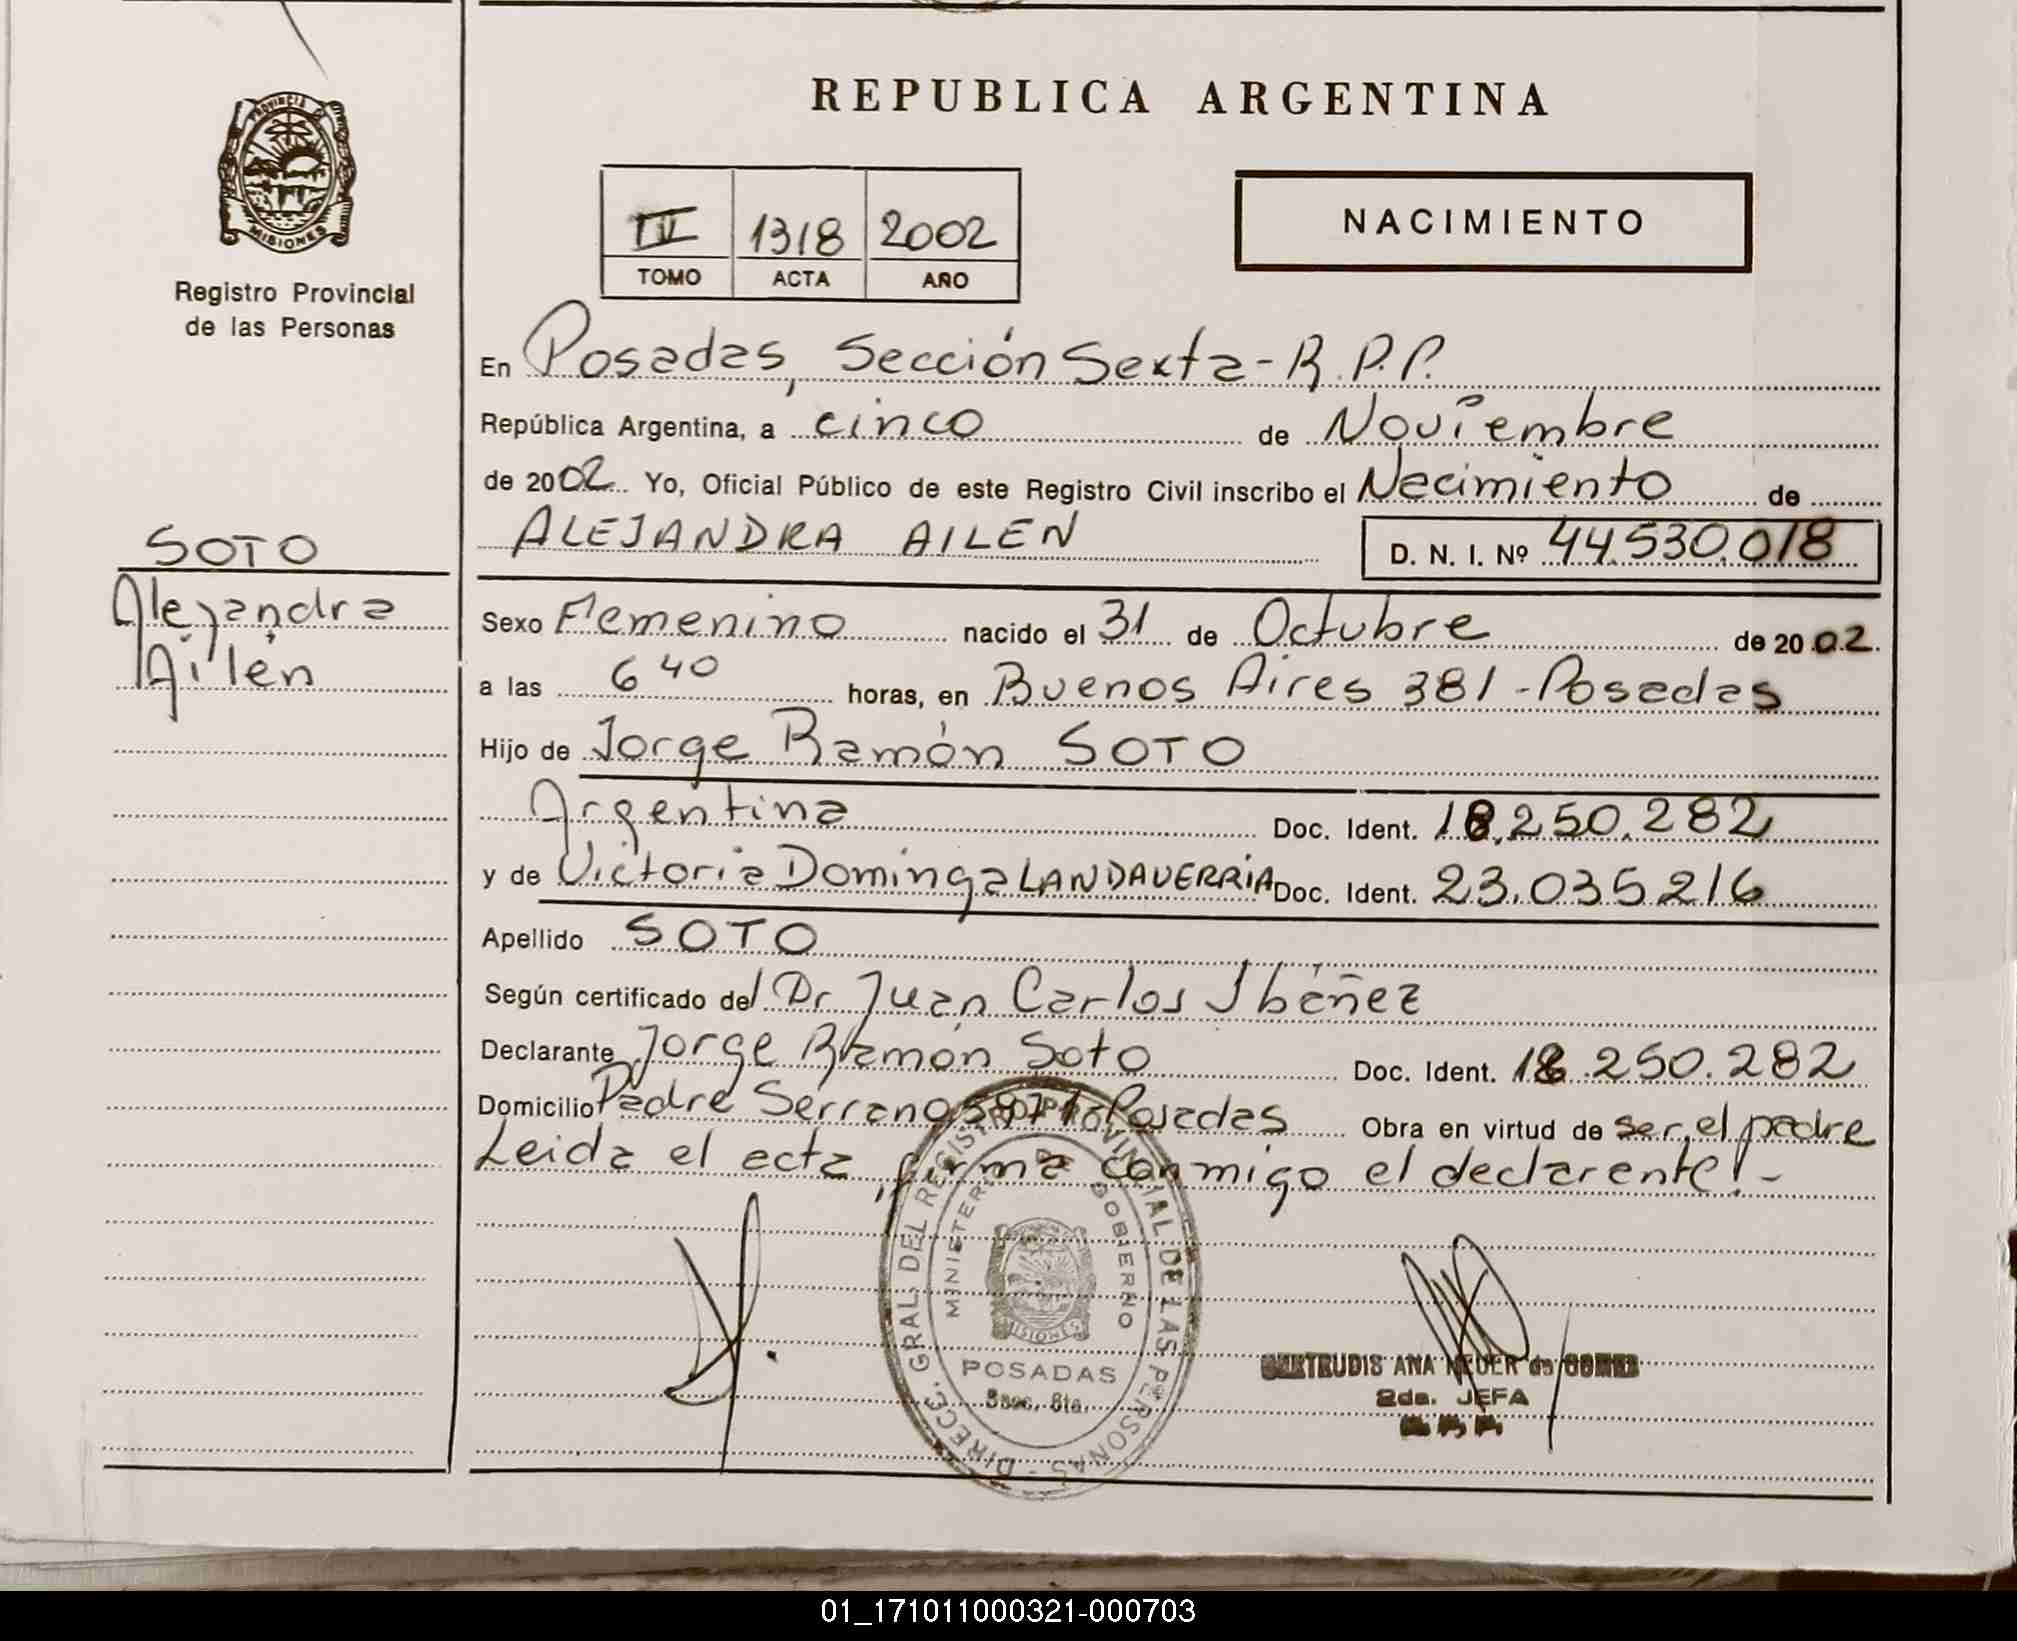 REPUBLICA ARGENTINA
PROVINCIA
MISIONES
Registro Provincial
de las Personas
1318 2002
TOMO ACTA AÑO
NACIMIENTO
En Posadas, Sección Sexta - R.P.P.
República Argentina, a cinco de Noviembre
de 2002 Yo, Oficial Público de este Registro Civil inscribo el Nacimiento de
ALEJANDRA AILEN D. N. I. Nº 44.530.018
SOTO
Alejandra
Ailén
Sexo Femenino nacido el 31 de Octubre de 2002.
a las 6 40 horas, en Buenos Aires 381 - Posadas
Hijo de Jorge Ramón SOTO
Argentina Doc. Ident. 18.250.282
y de Victoria Dominga LANDAVERRIA Doc. Ident. 23.035.216
Apellido SOTO
Según certificado del Dr Juan Carlos Ibáñez
Declarante Jorge Ramón Soto Doc. Ident. 18.250.282
Domicilio Padre Serrano Posadas Obra en virtud de ser el padre
Leida el acta, firma conmigo el declarante! -
DIRECC. GRAL DEL REGISTRO PROVINCIAL DE LAS PERSONAS -
MINISTERIO DE GOBIERNO
MISIONES
POSADAS
GERTRUDIS ANA NEUER de GOMEZ
2da. JEFA
01_171011000321-000703